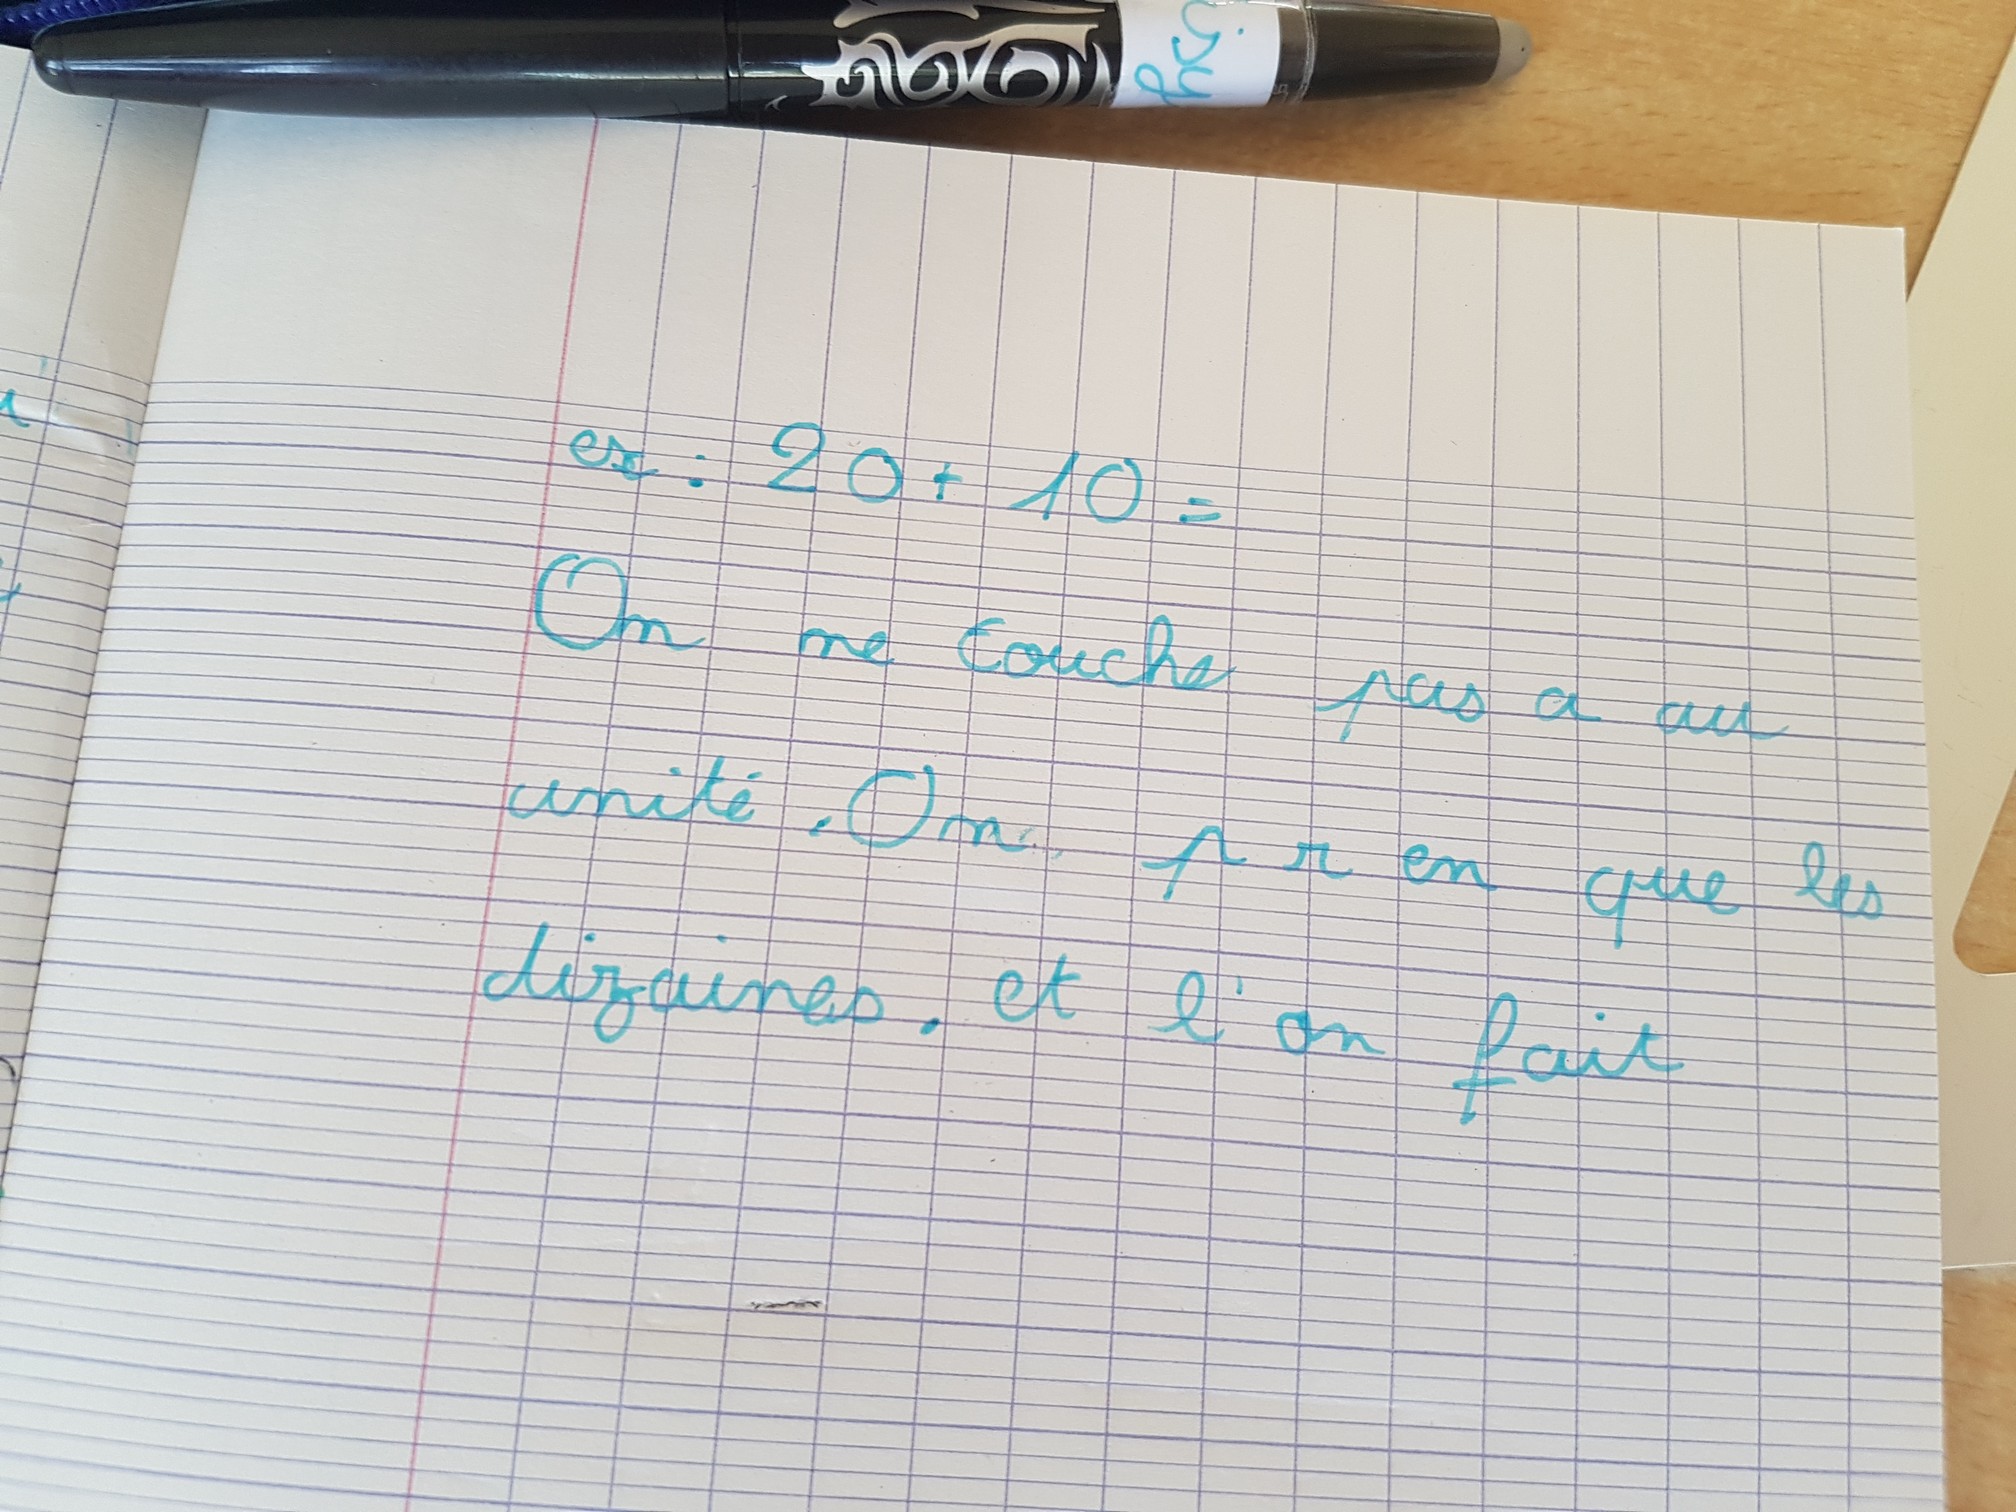 ex : 20 + 10 =
On ne touche pas a au
unité. On pren que les
dizaines. et l'on fait